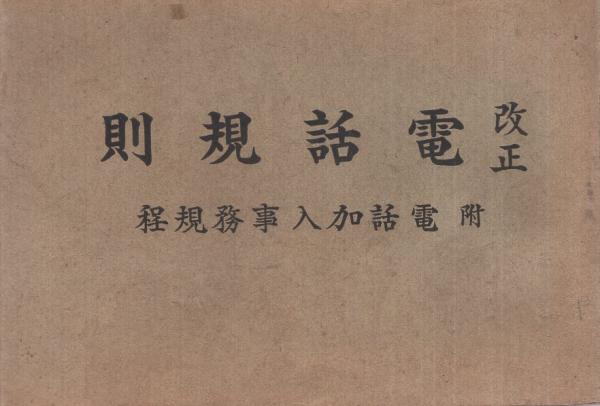 改正 電話規則
附 電話加入事務規程